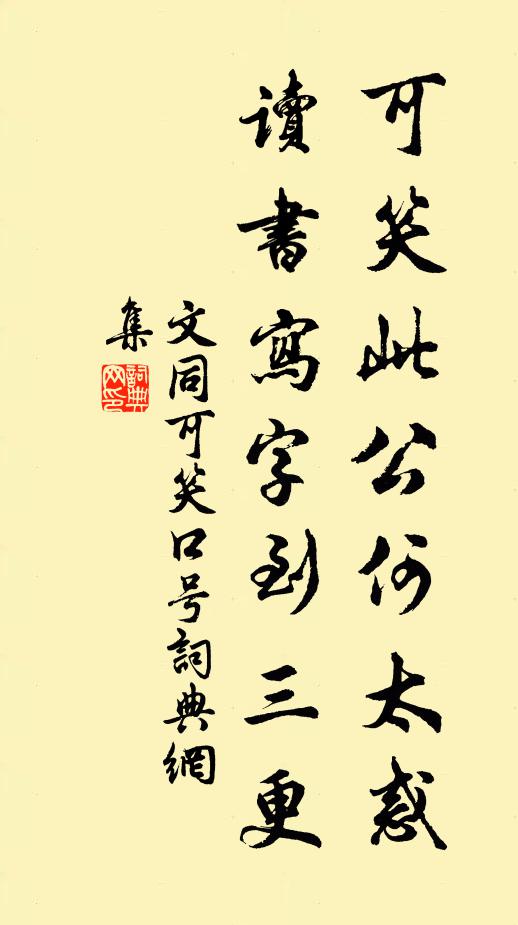 可笑此公何太惑
讀書寫字到三更
文同可笑口号詞典網
集
詞典
网印